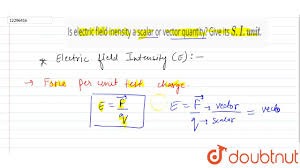 12296416
Is electric field inensity a scalar or vector quantity? Give its S. I. unit.
* Electric field Intensity (E) :-
→ Force per unit test charge.
E = F/q
E = F → vector / q → scalar = vector
doubtnut